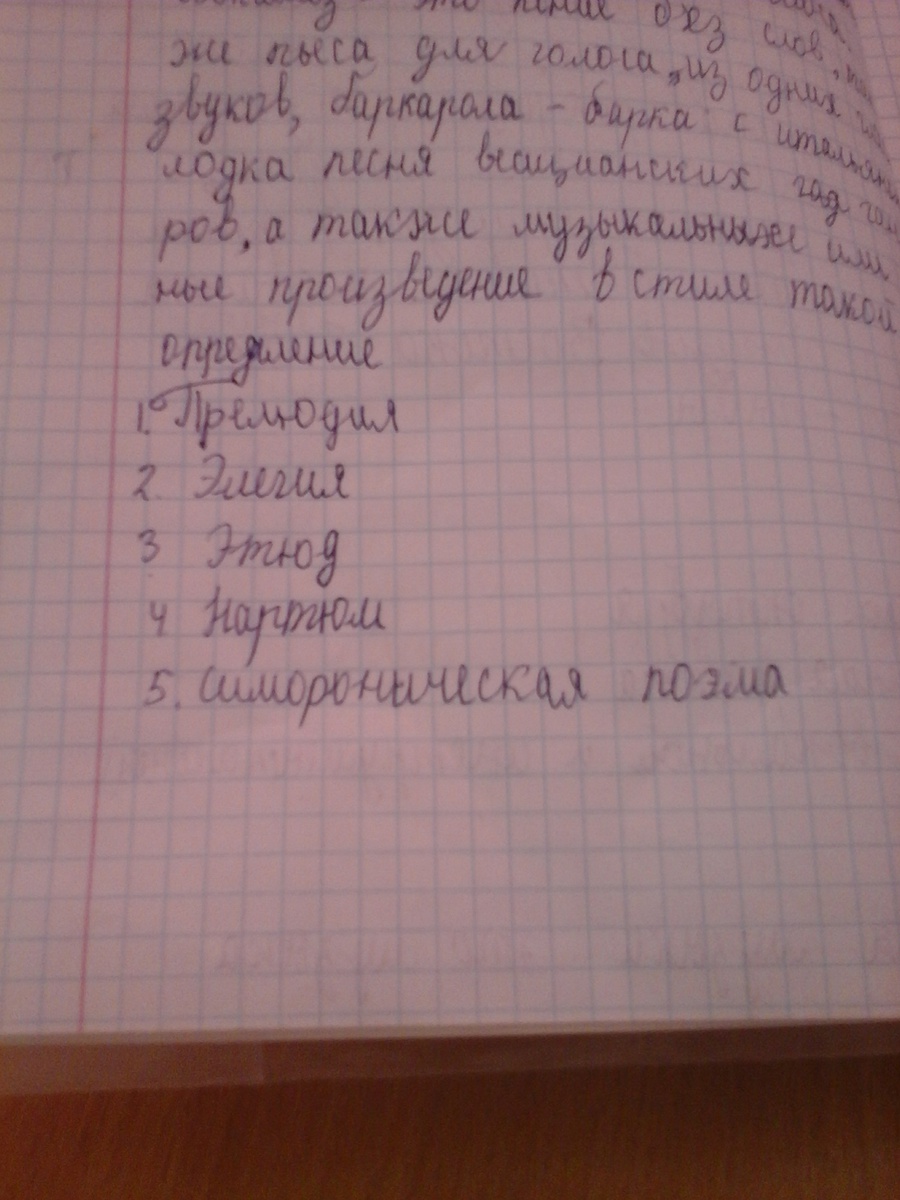 это пение без слов,
же пьеса для голоса из одних
звуков, баркарола - барка с
лодка песня веицианских гад
ров, а также музыкальныже или
ные произведение в стиле такой
определение
1. Прелюдия
2. Элегия
3 Этюд
4 Нартюм
5. Симороническая поэма